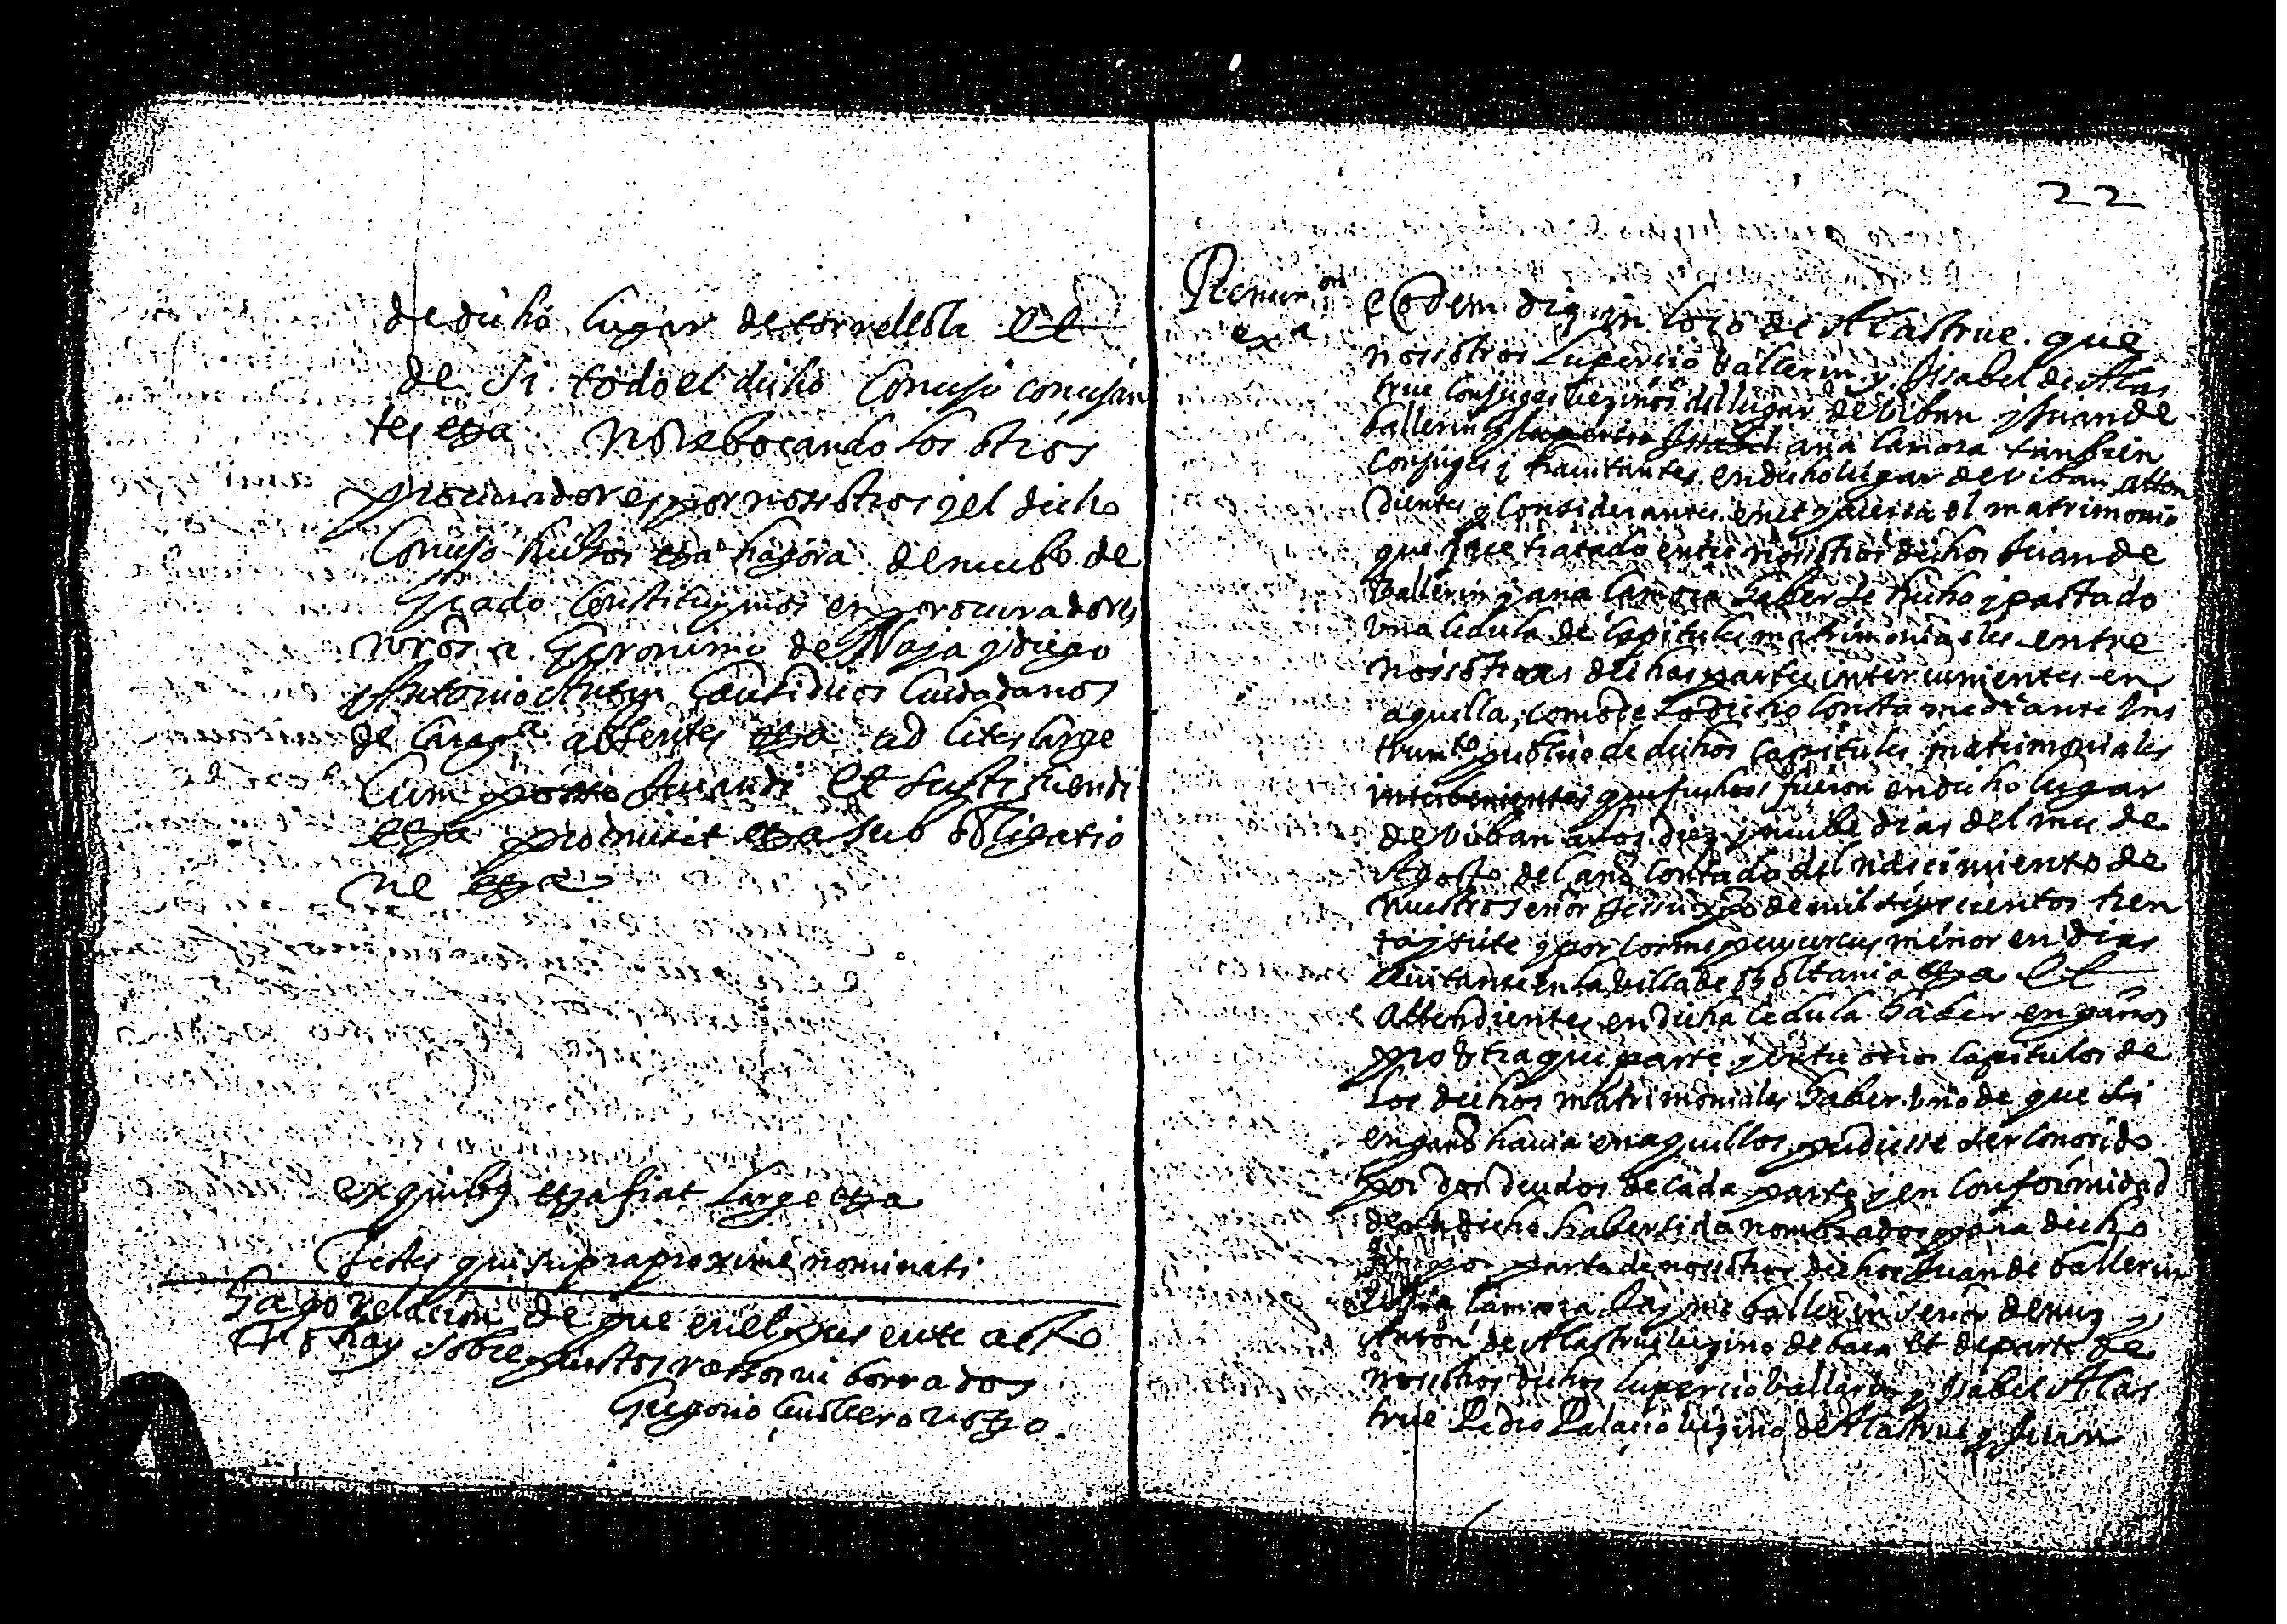 de dicho lugar de torrellola et
de si todo el dicho Concejo concejan
tes etza no rebocando los otros
procuradores por nosotros y el dicho
Concejo hechos etza hagora de nuebo de
grado constituymos en procuradores
nrōs a Geronimo de Naja y diego
Antonio Antin Causidicos Ciudadanos
de Caragª absentes etza ad lites large
Cum posse jurandi et sustituendi
etza promisit etza sub obligatio
ne etza
ex quibus etza fiat large etza
Testes qui supra proxime nominati
Hago relacion de que en el presente acto
no hay sobrepuestos rassos ni borrados
Gregorio notrio
22
Renunon
exª
eodem die in loco de Alastrue que
nosotros Lupercio ballerin y Isabel de Alas
true Conjuges vezinos del lugar de Viban y Juan de
ballerin y Lupercio Isabel ana Camora tanbien
Conjuges y havitantes en dicho lugar de Viban atten
dientes y Considerantes en et acerca el matrimonio
que fue tratado entre nosotros dichos Juan de
Ballerin y ana Camora haber se hecho y pactado
Una Cedula de Capitules matrimoniales entre
nosotros dichas partes intercinientes en
aquella, como de lo dicho consta mediante Ins
trumto publico de dichos capitules matrimoniales
interbenientes que fechos fueron en dicho lugar
de Viban a los diez y nuebe dias del mes de
Agosto del año Contado del nacimiento de
nuestro señor Jessu xpo de mil seyscientos tren
ta y siete y por menor en dias
avitante en la villa de Boltania etza et
Attendientes en dicha cedula haber engaños
pro utraque parte y entre otros Capitulos de
los dichos matrimoniales haber uno de que si
engaño havia en aquellos pudiesse ser conocido
por dos deudos de cada parte y en conformidad
de lo dicho haber sido nombrados para dicho
por parte de nosotros dichos Juan de ballerin
Camora Jayme ballerin señor de
Anton de Alastrue vezino de bara et de parte de
nosotros dichos Lupercio ballerin y Isabel Alas
true Pedro Palacio vezino de Alastrue y Juan